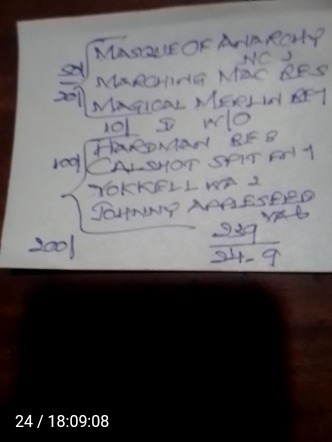 MASQUE OF ANARCHY
NC 2
50/ MARCHING MAC RES
20/ MAGICAL MERLIN
10/ D W/O
HARDMAN
100/ CALSHOT SPIT
YOKKELL WA 2
JOHNNY APPLESEED
200/
229
24-9
24 / 18:09:08